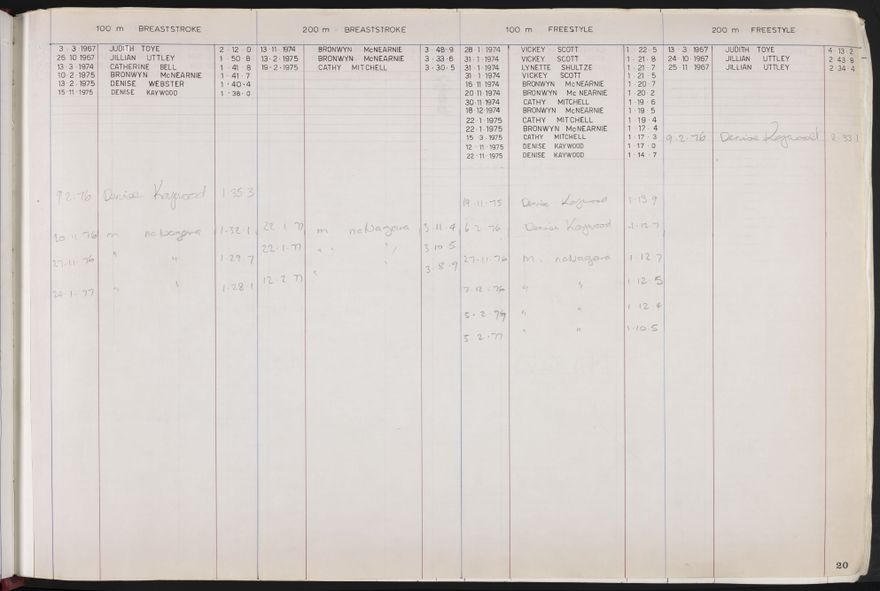 100 m BREASTSTROKE
3·3·1967 JUDITH TOYE 2·12·0
26 10 1967 JILLIAN UTTLEY 1·50·8
13·3·1974 CATHERINE BELL 1·41·8
10·2·1975 BRONWYN McNEARNIE 1·41·7
13·2·1975 DENISE WEBSTER 1·40·4
15·11·1975 DENISE KAYWOOD 1·38·0
9 2·76 Denise Kaywood 1·35·3
20·11·76 m 1·32·1
27·11·76 " " 1·29·7
29·1·77 " " 1·28·1
200 m BREASTSTROKE
13·11·1974 BRONWYN McNEARNIE 3·48·9
13·2·1975 BRONWYN McNEARNIE 3·33·6
19·2·1975 CATHY MITCHELL 3·30·5
22 1 77 m 3·11·4
22·1·77 " " " 3 10 5
12·2 77 " " 3·8·9
100 m FREESTYLE
28·1·1974 VICKEY SCOTT 1·22·5
31·1·1974 VICKEY SCOTT 1·21·8
31·1·1974 LYNETTE SHULTZE 1·21·7
31·1·1974 VICKEY SCOTT 1·21·5
16·11·1974 BRONWYN McNEARNIE 1·20·7
20·11·1974 BRONWYN McNEARNIE 1·20·2
30·11·1974 CATHY MITCHELL 1·19·6
18·12·1974 BRONWYN McNEARNIE 1·19·5
22·1·1975 CATHY MITCHELL 1·19·4
22·1·1975 BRONWYN McNEARNIE 1·17·4
15·3·1975 CATHY MITCHELL 1·17·3
12·11·1975 DENISE KAYWOOD 1·17·0
22·11·1975 DENISE KAYWOOD 1·14·7
19·11·75 Denise Kaywood 1·13·9
6·2·76 Denise Kaywood 1·12·7
27·11·76 M. 1·12·7
7·12·76 " " 1·12·5
5·2·77 " " 1·12·4
5·2·77 " " 1·10·5
200 m FREESTYLE
13·3·1967 JUDITH TOYE 4·13·2
24·10·1967 JILLIAN UTTLEY 2·43·8
25·11·1967 JILLIAN UTTLEY 2·34·4
9·2·76 Denise Kaywood 2·33·1
20